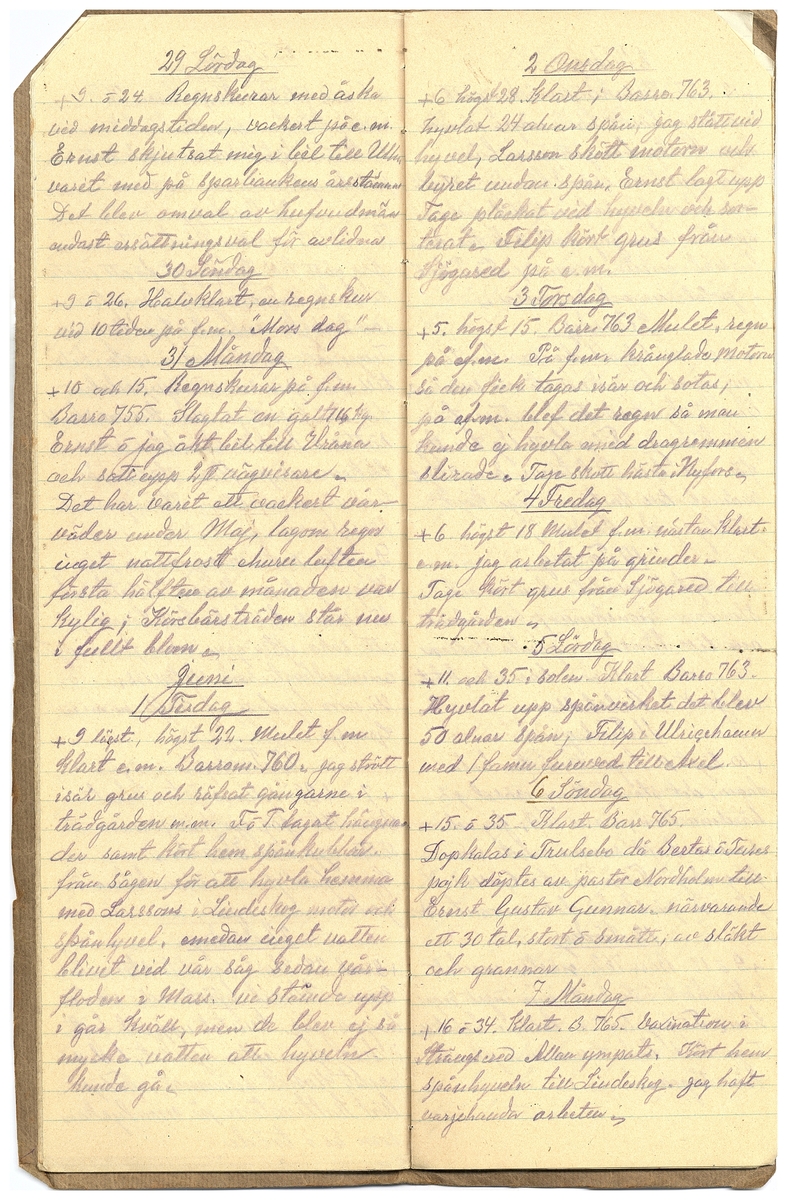 29 Lördag
+9. ö 24. Regnskurar med åska
vid middagstiden, vackert på e.m.
Ernst skjutsat mig i bil till Ulhn
varit med på sparbankens årsstämma
Det blev omval av hufvudmän
endast ersättningsval för avlidna
30 Söndag
+9 ö 26. Halvklart, en regnskur
vid 10 tiden på f.m. "Mors dag" –
31 Måndag
+10 och 15. Regnskurar på f.m.
Barro 755. Slagtat en galt 116 kg.
Ernst ö jag åkt bil till Vråna
och satt upp 2 vägvisare.
Det har varit ett vackert vår-
väder under Maj, lagom regn
inget nattfrost ehuru luften
första hälften av månaden var
kylig; Körsbärsträden står nu
i fullt blom.
Juni
1 Tisdag
+9 lägst, högst 22. Mulet f.m
klart e.m. Barrom. 760. jag strött
isär grus och räfsat gångarne i
trädgården m.m. F ö T lagat hägna-
der samt kört hem spånkubbar.
från sågen för att hyvla hemma
med Larssons i Lindeskog motor och
spånhyvel. emedan inget vatten
blivit vid vår såg sedan vår-
floden i Mars. vi stämde upp
i går kväll, men de blev ej så
mycke vatten att hyveln
kunde gå.
2 Onsdag
+6 högst 28. Klart; Barro. 763.
hyvlat 24 alnar spån; jag stått vid
hyvel, Larsson skött motorn och
byret undan spån. Ernst lagt upp
Tage plåckat vid hyveln och sor-
terat. Filip kört grus från
Sjögared på e.m.
3 Torsdag
+5. högst 15. Barr. 763 Mulet, regn
på e.m. På f.m. krånglade motorn
så den fick tagas isär och sotas;
på e.m. blef det regn så man
kunde ej hyvla emed dragremmen
slirade. Tage skött hästa Hyfors.
4 Fredag
+6 högst 18 Mulet f.m. nästan klart.
e.m. jag arbetat på grinder.
Tage kört grus från Sjögared till
trädgården.
5 Lördag
+11 och 35 i solen. Klart Barro 763.
Hyvlat upp spånvirket det blev
50 alnar spån; Filip i Ulricehamn
med 1 famn fureved till Axel.
6 Söndag
+15. ö 35 Klart. Barr 765.
Dopkalas i Trulsebo då Bertas ö Tures
pojk döptes av pastor Nordholm till
Ernst Gustav Gunnar. närvarande
ett 30 tal, stort ö smått, av släkt
och grannar
7 Måndag
+16 ö 34. Klart. B. 765. Vaxination i
Strängsered Allan ympats. Kört hem
spånhyveln till Lindeskog. jag haft
varjehanda arbeten.